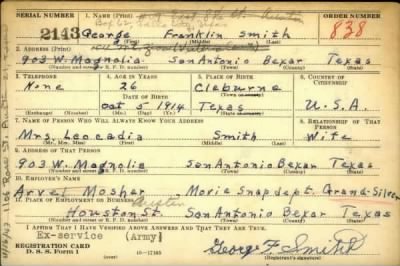 SERIAL NUMBER 1. NAME (Print) ORDER NUMBER
2143 George Franklin Smith 838
(First) (Middle) (Last)
2. ADDRESS (Print)
903 W. Magnolia San Antonio Bexar Texas
(Number and street or R. F. D. number) (Town) (County) (State)
3. TELEPHONE 4. AGE IN YEARS 5. PLACE OF BIRTH 6. COUNTRY OF CITIZENSHIP
None 26 Cleburne
DATE OF BIRTH
Oct 5 1914 Texas U.S.A.
(Exchange) (Number) (Mo.) (Day) (Yr.) (State or country)
7. NAME OF PERSON WHO WILL ALWAYS KNOW YOUR ADDRESS 8. RELATIONSHIP OF THAT PERSON
Mrs. Leocadia Smith Wife
(Mr., Mrs., Miss) (First) (Middle) (Last)
9. ADDRESS OF THAT PERSON
903 W. Magnolia San Antonio Bexar Texas
(Number and street or R. F. D. number) (Town) (County) (State)
10. EMPLOYER'S NAME
Arvel Mosher Movie Snap dept. Grand-Silver
11. PLACE OF EMPLOYMENT OR BUSINESS Austin
Houston St. San Antonio Bexar Texas
(Number and street or R. F. D. number) (Town) (County) (State)
I AFFIRM THAT I HAVE VERIFIED ABOVE ANSWERS AND THAT THEY ARE TRUE.
Ex-service (Army)
REGISTRATION CARD
D. S. S. FORM 1 16-17105 George F. Smith